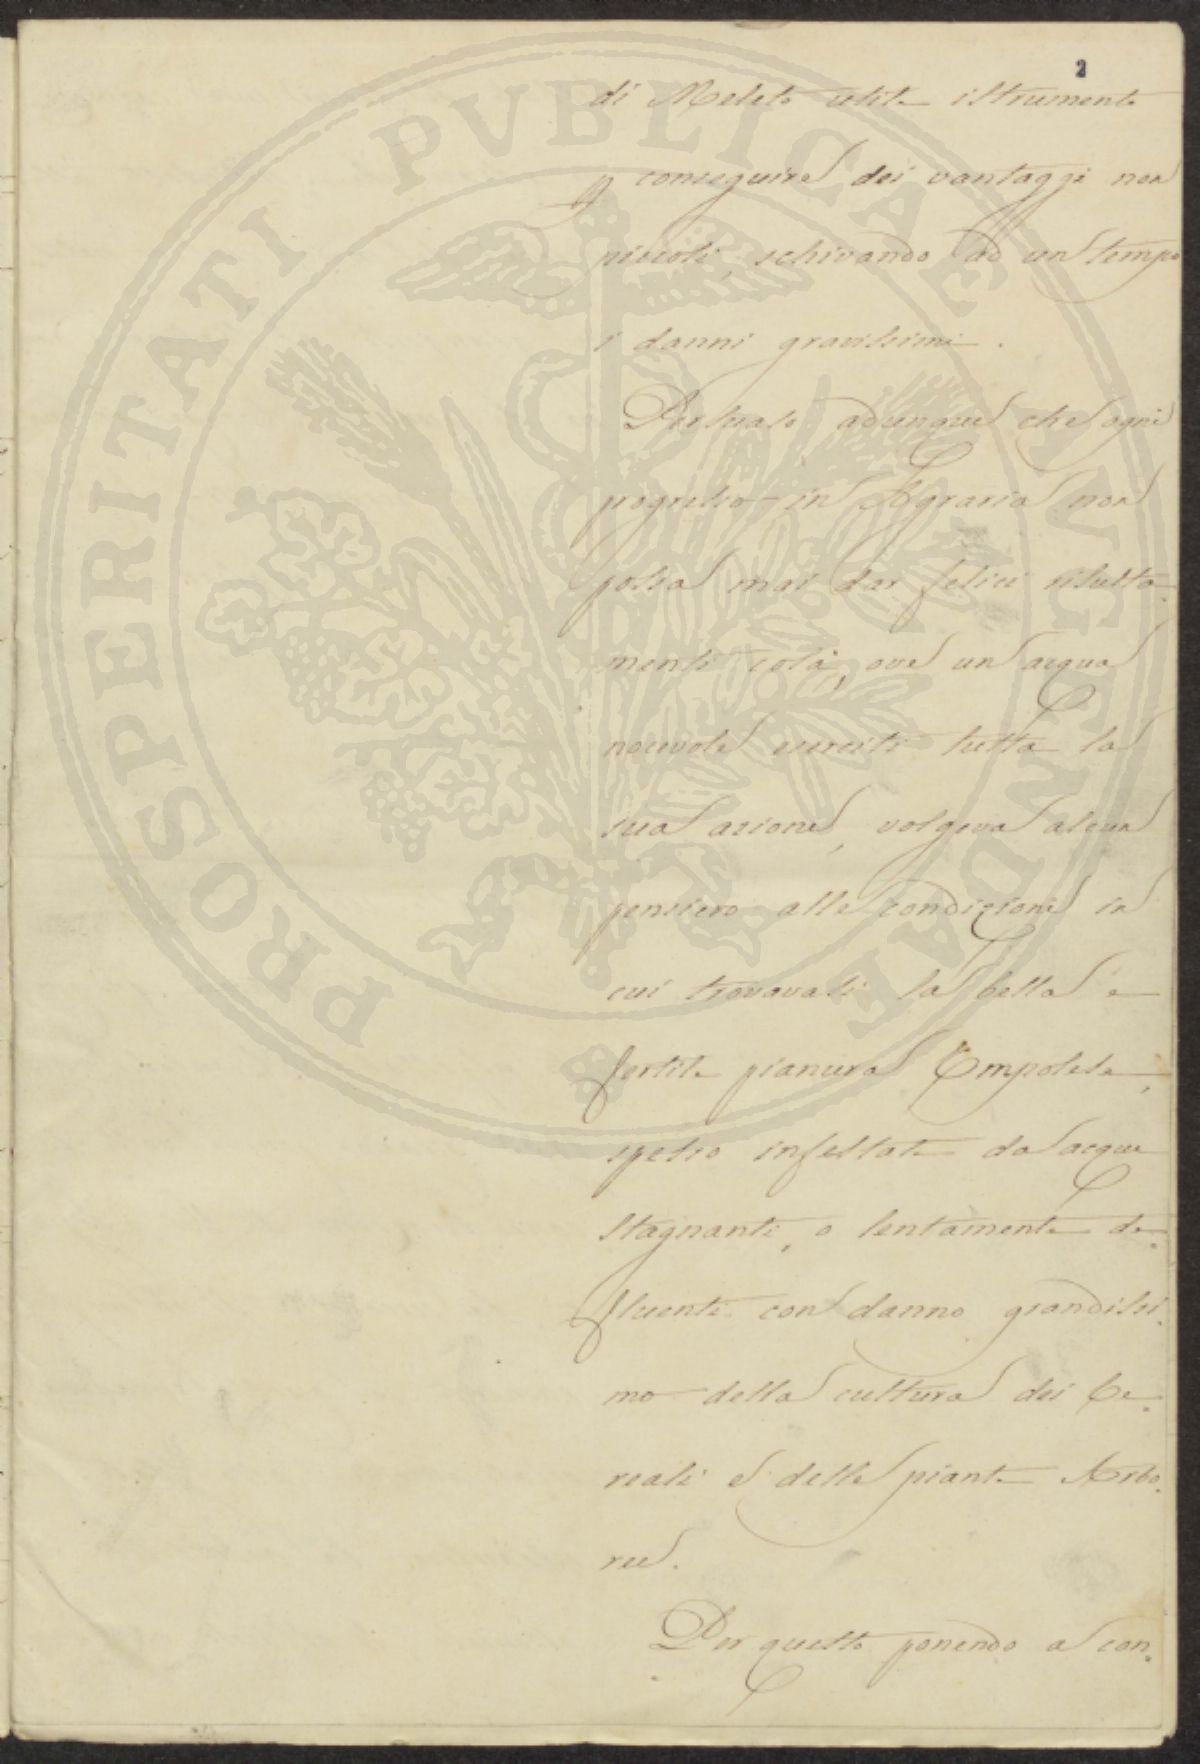 2
di Meleto utile istrumento
p conseguire dei vantaggi non
piccoli, schivando ad un tempo
i danni gravissimi.
Persuaso adunque che ogni
progresso in Agraria non
possa mai dar felici risulta-
menti colà, ove un acqua
nocevole eserciti tutta la
sua azione, volgeva alcun
pensiero alle condizioni in
cui trovavasi la bella e
fertile pianura Empolese,
spesso infestate da acque
stagnanti, o lentamente de-
fluenti con danno grandissi-
mo della cultura dei Ce-
reali e delle piante Arbo-
ree.
Per questo ponendo a con-
PROSPERITATI PVBLICAE AVGENDAE